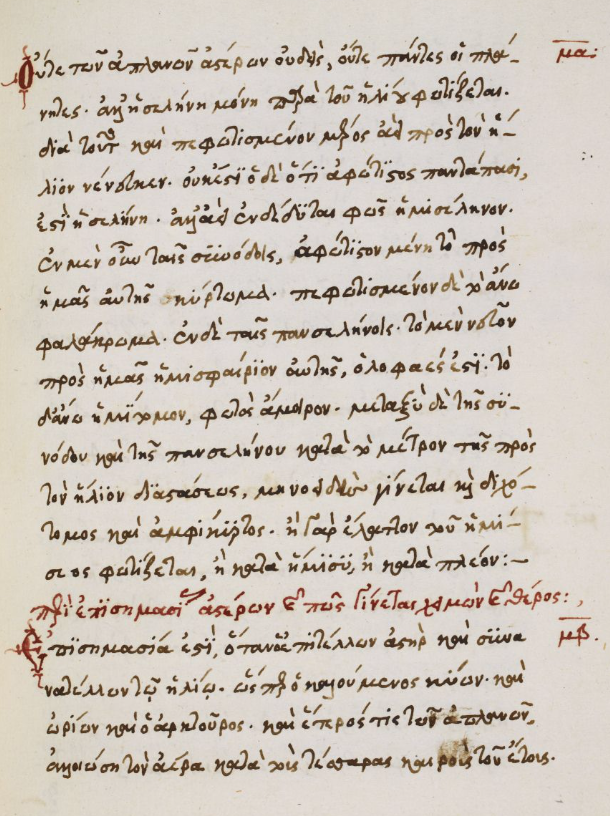 Οὔτε τῶν ἀπλανῶν ἀστέρων οὐδεὶς, οὔτε πάντες οἱ πλά- μα:
νητες. ἀλλ' ἡ σελήνη μόνη παρὰ τοῦ ἡλίου φωτίζεται.
διὰ τοῦτο καὶ πεφωτισμένον μέρος ἀεὶ πρὸς τὸν ἥ-
λιον νένευκεν. οὐκ ἔστι δὲ ὅτι ἀφώτιστος παντάπασι,
ἐστὶ ἡ σελήνη. ἀλλ' ἀεὶ ἐνδέδυται φῶς ἡμισέληνον.
ἐν μὲν οὖν ταῖς συνόδοις, ἀφώτιστον μένει τὸ πρὸς
ἡμᾶς αὐτῆς κύρτωμα. πεφωτισμένον δὲ τὸ ἄνω
φαλάκρωμα. ἐν δὲ ταῖς πανσελήνοις. τὸ μὲν
πρὸς ἡμᾶς ἡμισφαίριον αὐτῆς, ὁλοφαές ἐστι. τὸ
δ' ἄνω ἡμίτομον, φωτὸς ἄμοιρον. μεταξὺ δὲ τῆς συ-
νόδου καὶ τῆς πανσελήνου κατὰ τὸ μέτρον τῆς πρὸς
τὸν ἥλιον διαστάσεως, μηνοειδὴς γίνεται καὶ διχό-
τομος καὶ ἀμφίκυρτος. ἢ γὰρ ἔλαττον τοῦ ἡμί-
σεος φωτίζεται, ἢ κατὰ ἥμισυ, ἢ κατὰ πλέον:-
περὶ ἐπισημασίας ἀστέρων καὶ πῶς γίνεται χειμὼν καὶ θέρος:,
Ἐπισημασία ἐστὶ, ὅταν ἐπιτέλλων ἀστὴρ καὶ συνα μβ.
νατέλλων τῷ ἡλίῳ. ὥσπερ ὁ καλούμενος κύων. καὶ
ὠρίων καὶ ὁ ἀρκτοῦρος. καὶ ἕτερός τις τῶν ἀπλανῶν,
ἀλλοιώσῃ τὸν ἀέρα κατὰ τοὺς τέσσαρας καιροὺς τοῦ ἔτους.